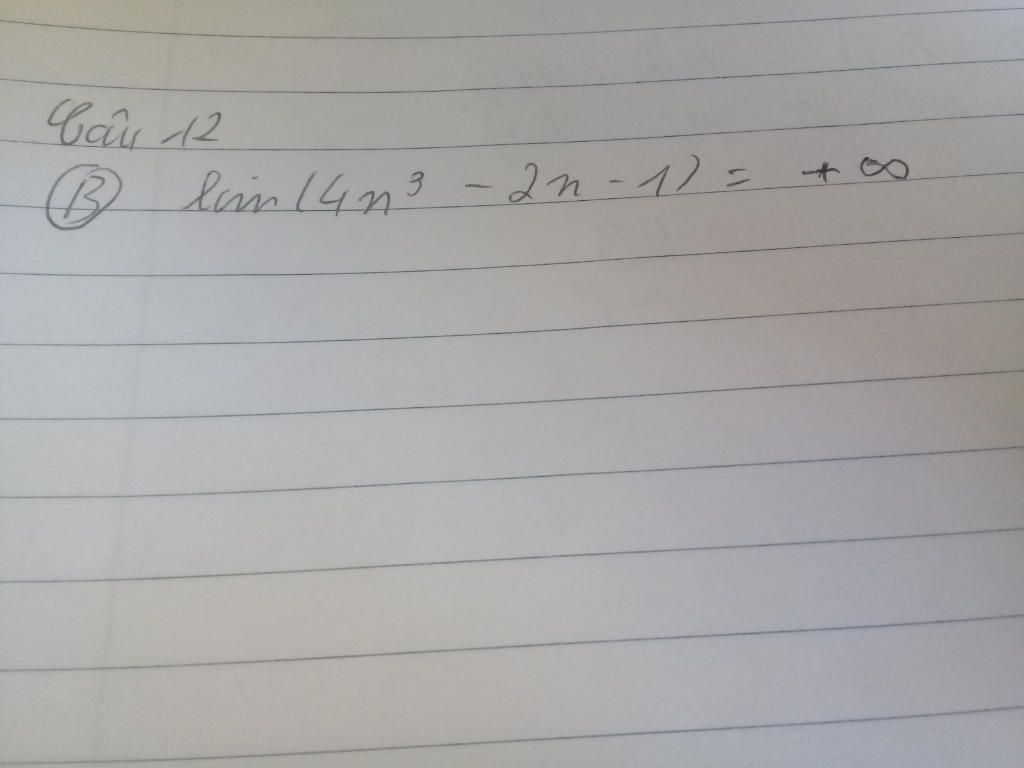 Câu 12
B lim(4n³ - 2n - 1) = +∞